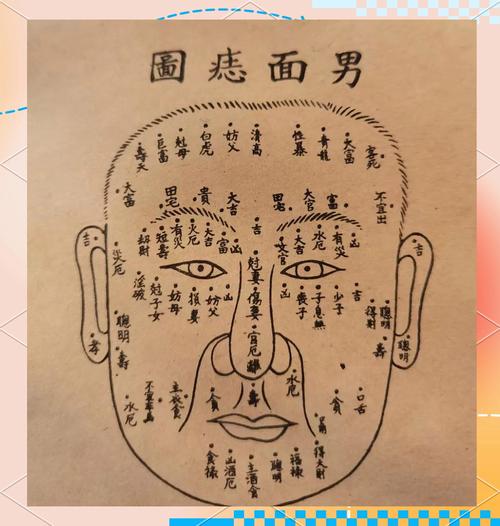 男面痣圖
客死
大富
青龍
性暴
清高
妨父
白虎
尅母
巨富
壽夭
不宜出
富
大官
田宅
吉
大吉
貴
田宅
大富
凶
有災
水厄
大吉
文官
凶
富
大吉
火厄
有災
短壽
劫財
吉
吉
災厄
尅妻
傷妻
官厄
聰明
得財
吉
少子
子息
喪子
凶
凶
妨父
妨母
尅子女
淫破
壽
聰明
壽
聰明
壽
口舌
貪
水厄
壽
貪
主衣食
水厄
得大財
福祿
聰明
主酒食
凶酒厄
食祿